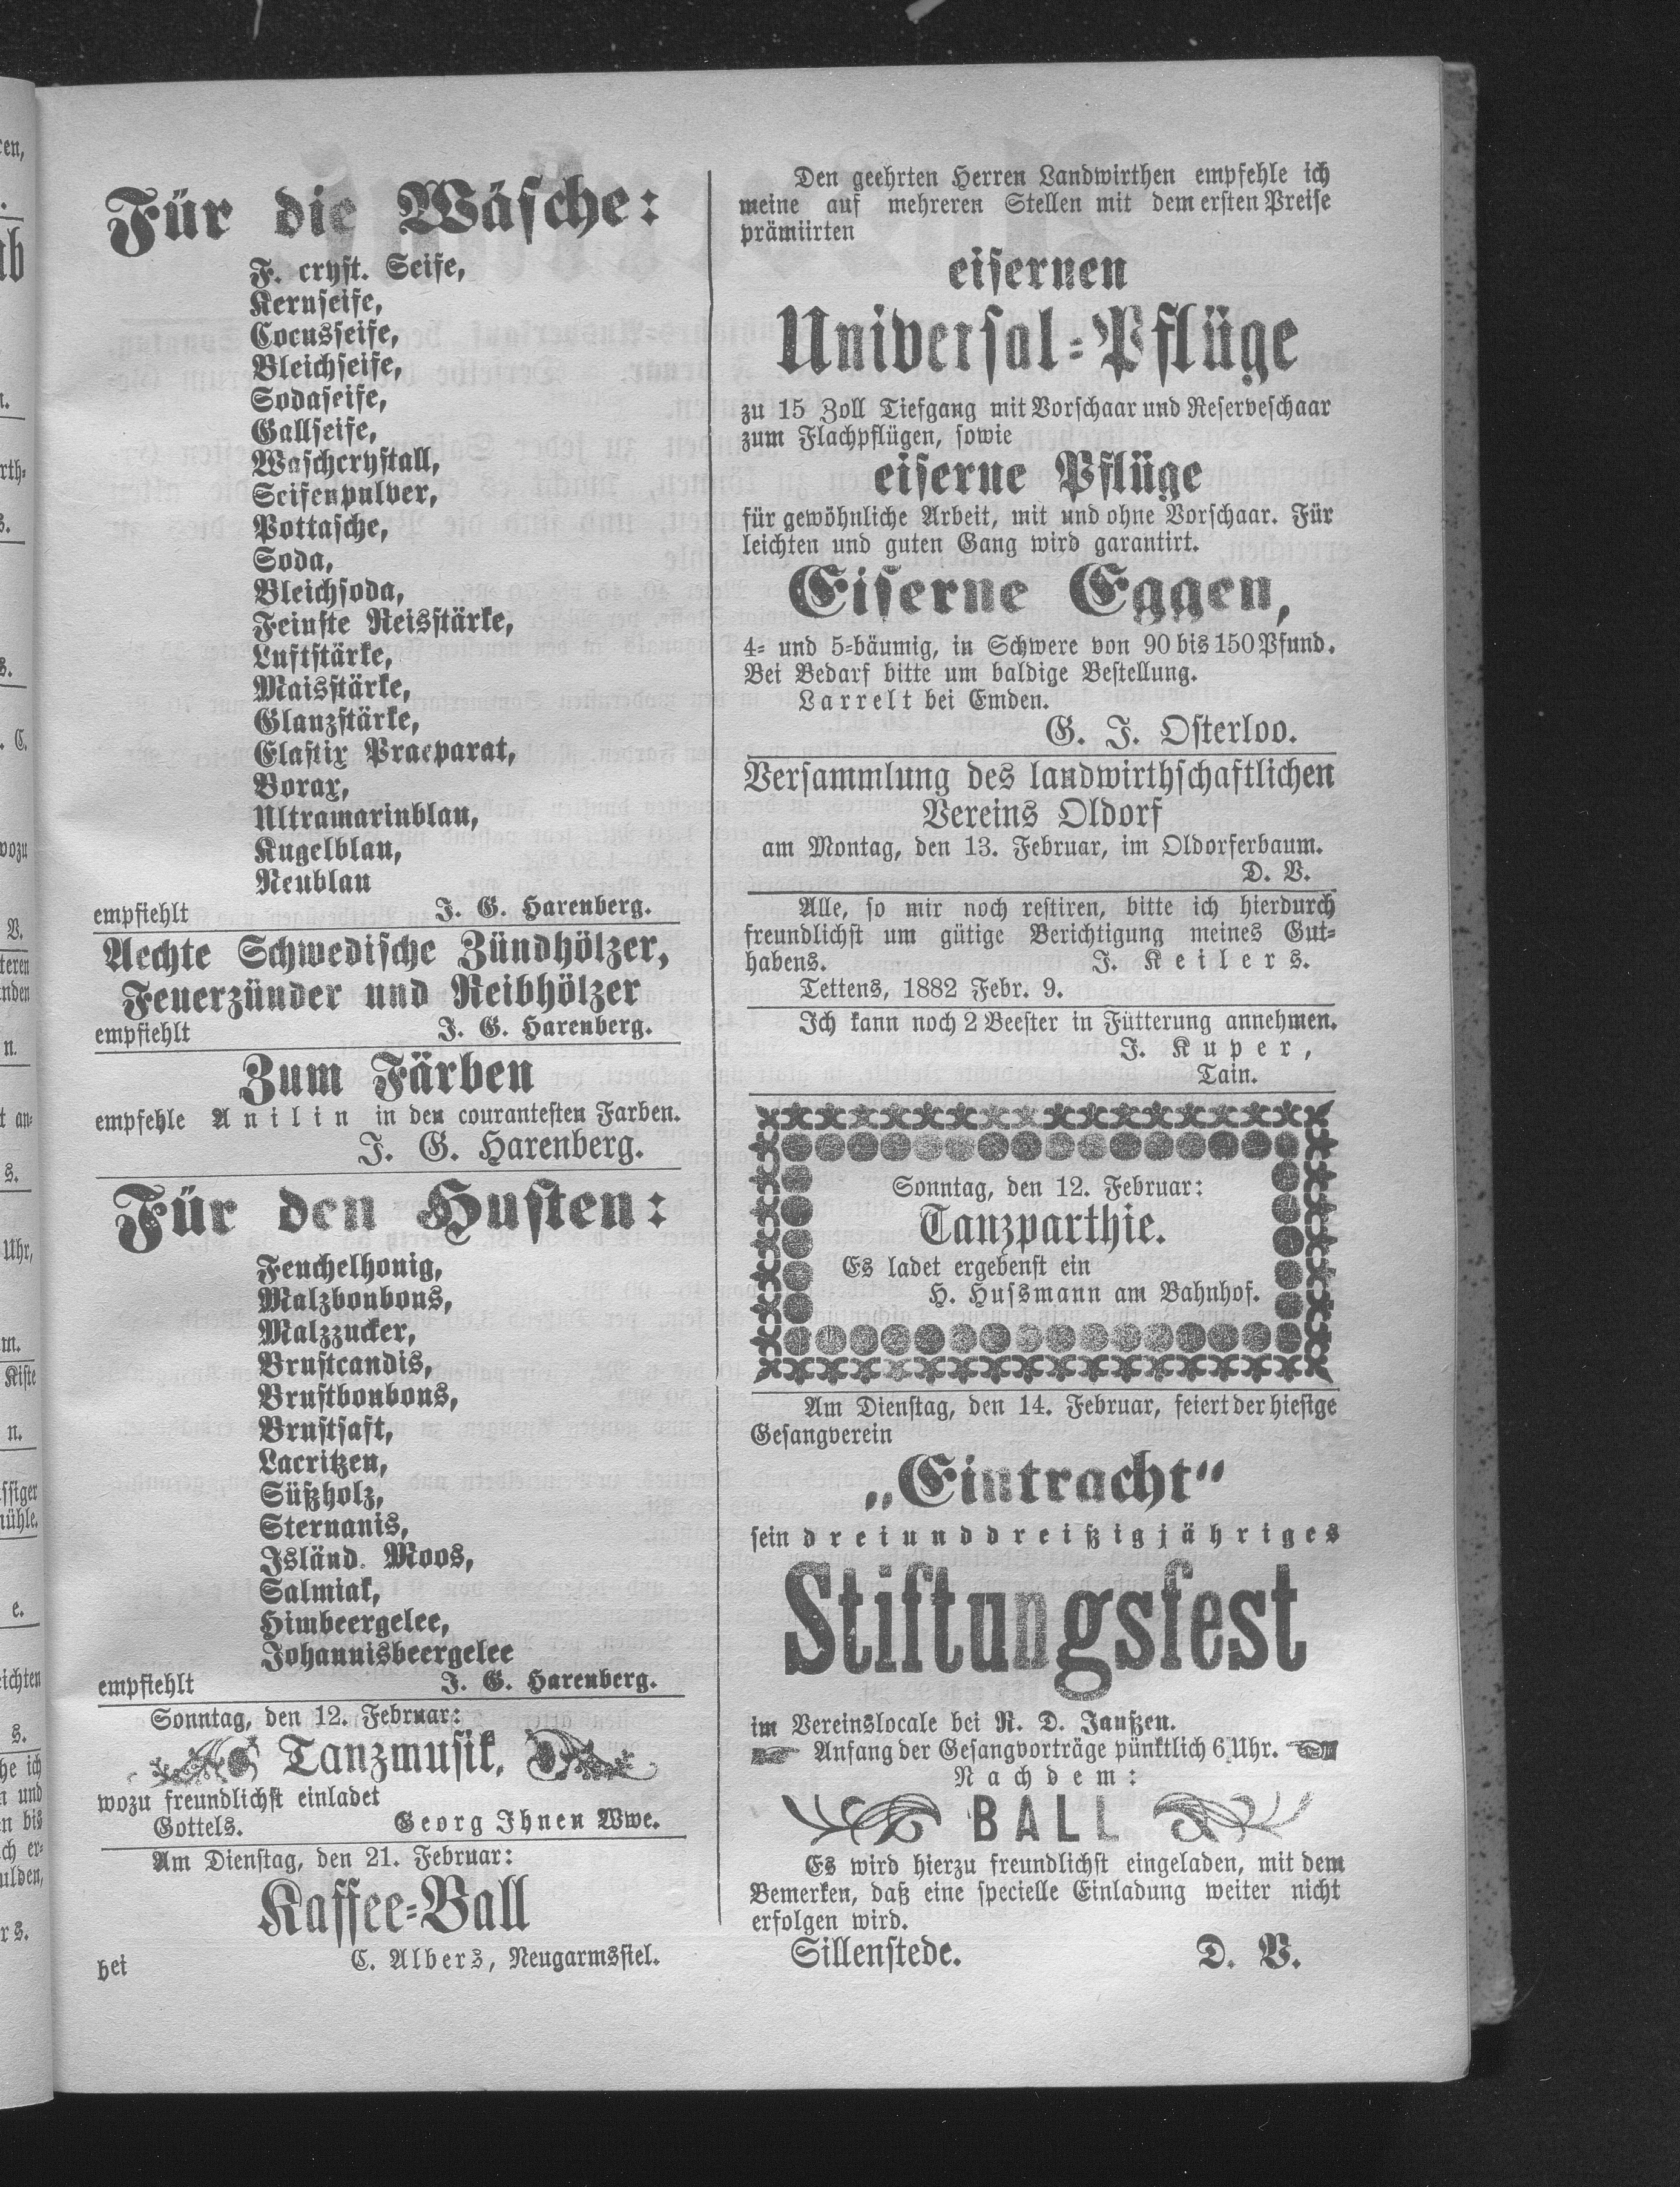 Für die Wäsche:
F. cryst. Seife,
Kernseife,
Cocusseife,
Bleichseife,
Sodaseife,
Gallseife,
Waschcrystall,
Seifenpulver,
Pottasche,
Soda,
Bleichsoda,
Feinste Reisstärke,
Luftstärke,
Maisstärke,
Glanzstärke,
Elastix Praeparat,
Borax,
Ultramarinblau,
Kugelblau,
Neublau
empfiehlt J. G. Harenberg.
Aechte Schwedische Zündhölzer,
Feuerzünder und Reibhölzer
empfiehlt J. G. Harenberg.
Zum Färben
empfehle Anilin in den courantesten Farben.
J. G. Harenberg.
Für den Husten:
Fenchelhonig,
Malzbonbons,
Malzzucker,
Brustcandis,
Brustbonbons,
Brustsaft,
Lacritzen,
Süßholz,
Sternanis,
Isländ. Moos,
Salmiak,
Himbeergelee,
Johannisbeergelee
empfiehlt J. G. Harenberg.
Sonntag, den 12. Februar:
Tanzmusik,
wozu freundlichst einladet
Gottels. Georg Ihnen Wwe.
Am Dienstag, den 21. Februar:
Kaffee-Ball
bei C. Albers, Neugarmssiel.
Den geehrten Herren Landwirthen empfehle ich
meine auf mehreren Stellen mit dem ersten Preise
prämiirten
eisernen
Universal-Pflüge
zu 15 Zoll Tiefgang mit Vorschaar und Reserveschaar
zum Flachpflügen, sowie
eiserne Pflüge
für gewöhnliche Arbeit, mit und ohne Vorschaar. Für
leichten und guten Gang wird garantirt.
Eiserne Eggen,
4- und 5-bäumig, in Schwere von 90 bis 150 Pfund.
Bei Bedarf bitte um baldige Bestellung.
Larrelt bei Emden.
G. J. Osterloo.
Versammlung des landwirthschaftlichen
Vereins Oldorf
am Montag, den 13. Februar, im Oldorferbaum.
D. V.
Alle, so mir noch restiren, bitte ich hierdurch
freundlichst um gütige Berichtigung meines Gut-
habens. J. Keilers.
Tettens, 1882 Febr. 9.
Ich kann noch 2 Beester in Fütterung annehmen.
J. Kuper,
Tain.
Sonntag, den 12. Februar:
Tanzparthie.
Es ladet ergebenst ein
H. Hussmann am Bahnhof.
Am Dienstag, den 14. Februar, feiert der hiesige
Gesangverein
„Eintracht“
sein dreiunddreißigjähriges
Stiftungsfest
im Vereinslocale bei R. D. Janßen.
Anfang der Gesangvorträge pünktlich 6 Uhr.
Nachdem:
BALL
Es wird hierzu freundlichst eingeladen, mit dem
Bemerken, daß eine specielle Einladung weiter nicht
erfolgen wird.
Sillenstede. D. V.